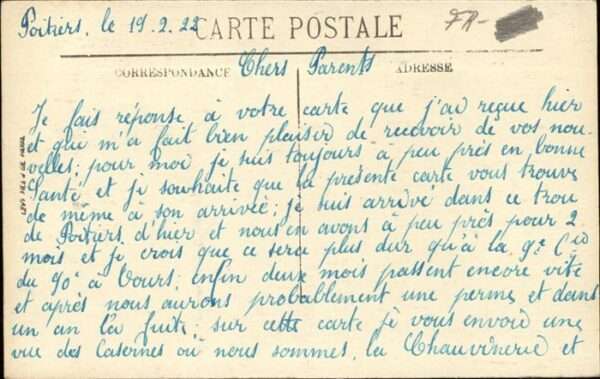 Poitiers, le 19.2.22 CARTE POSTALE FR-
CORRESPONDANCE Chers Parents ADRESSE
Je fais réponse à votre carte que j'ai reçue hier
et qui m'a fait bien plaisir de recevoir de vos nou-
velles; pour moi je suis toujours à peu près en bonne
Santé et je souhaite que la présente carte vous trouve
de même à son arrivée; je suis arrivé dans ce trou
de Poitiers d'hier et nous en avons à peu près pour 2
mois et je crois que ce sera plus dur qu'à la 9e Cie
du 90e à Tours; enfin deux mois passent encore vite
et après nous aurons probablement une perme et dans
un an la fuite; sur cette carte je vous envoie une
vue des Casernes où nous sommes, la Chauvinerie et